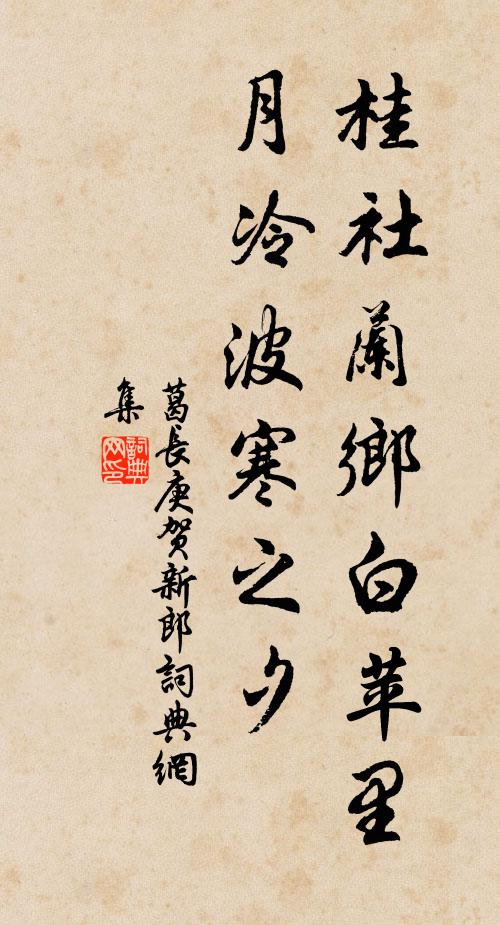 桂社蘭鄉白苹里
月冷波寒之夕
葛長庚贺新郎詞典網
集
詞典
网印